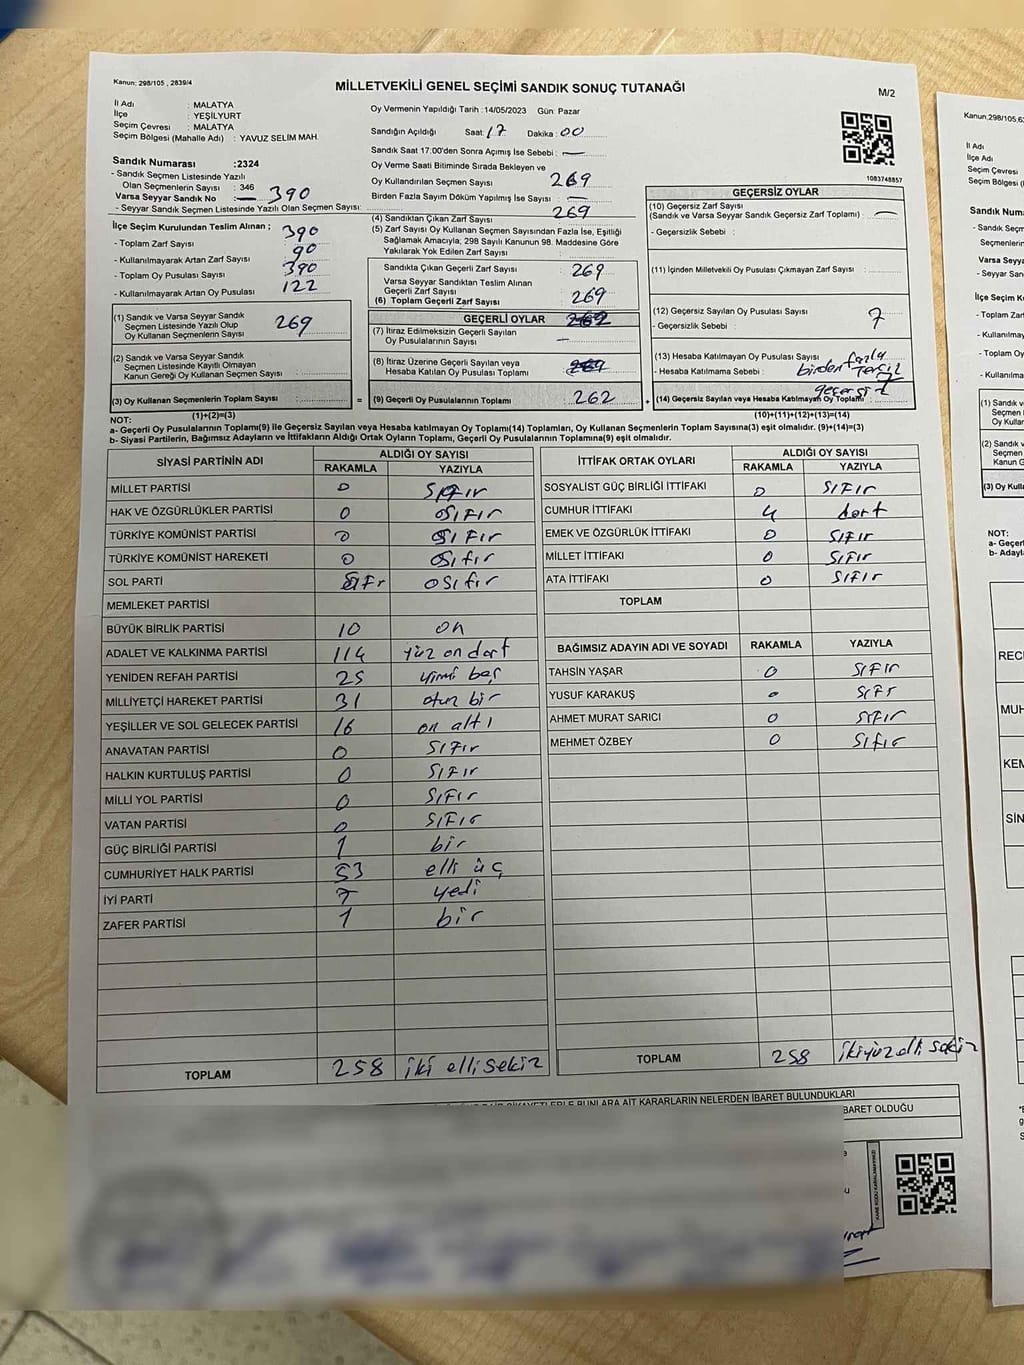 Kanun: 298/105 , 2839/4
MİLLETVEKİLİ GENEL SEÇİMİ SANDIK SONUÇ TUTANAĞI
M/2
İl Adı : MALATYA
İlçe : YEŞİLYURT
Seçim Çevresi : MALATYA
Seçim Bölgesi (Mahalle Adı) : YAVUZ SELİM MAH.
Oy Vermenin Yapıldığı Tarih : 14/05/2023 Gün: Pazar
Sandığın Açıldığı Saat: 17 Dakika : 00
Sandık Saat 17:00'den Sonra Açımış İse Sebebi : —
Oy Verme Saati Bitiminde Sırada Bekleyen ve
Oy Kullandırılan Seçmen Sayısı 269
Birden Fazla Sayım Döküm Yapılmış İse Sayısı : —
1083748857
Sandık Numarası :2324
- Sandık Seçmen Listesinde Yazılı
Olan Seçmenlerin Sayısı : 346
Varsa Seyyar Sandık No : — 390
- Seyyar Sandık Seçmen Listesinde Yazılı Olan Seçmen Sayısı:
İlçe Seçim Kurulundan Teslim Alınan ;
- Toplam Zarf Sayısı 390
- Kullanılmayarak Artan Zarf Sayısı 90
- Toplam Oy Pusulası Sayısı 390
- Kullanılmayarak Artan Oy Pusulası 122
(1) Sandık ve Varsa Seyyar Sandık
Seçmen Listesinde Yazılı Olup
Oy Kullanan Seçmenlerin Sayısı 269
(2) Sandık ve Varsa Seyyar Sandık
Seçmen Listesinde Kayıtlı Olmayan
Kanun Gereği Oy Kullanan Seçmen Sayısı
(3) Oy Kullanan Seçmenlerin Toplam Sayısı
(1)+(2)=(3)
(4) Sandıktan Çıkan Zarf Sayısı 269
(5) Zarf Sayısı Oy Kullanan Seçmen Sayısından Fazla İse, Eşitliği
Sağlamak Amacıyla, 298 Sayılı Kanunun 98. Maddesine Göre
Yakılarak Yok Edilen Zarf Sayısı
Sandıkta Çıkan Geçerli Zarf Sayısı 269
Varsa Seyyar Sandıktan Teslim Alınan
Geçerli Zarf Sayısı
(6) Toplam Geçerli Zarf Sayısı 269
GEÇERLİ OYLAR
(7) İtiraz Edilmeksizin Geçerli Sayılan
Oy Pusulalarının Sayısı —
(8) İtiraz Üzerine Geçerli Sayılan veya
Hesaba Katılan Oy Pusulası Toplamı
= (9) Geçerli Oy Pusulalarının Toplamı 262
GEÇERSİZ OYLAR
(10) Geçersiz Zarf Sayısı
(Sandık ve Varsa Seyyar Sandık Geçersiz Zarf Toplamı) : —
- Geçersizlik Sebebi :
(11) İçinden Milletvekili Oy Pusulası Çıkmayan Zarf Sayısı :
(12) Geçersiz Sayılan Oy Pusulası Sayısı 7
- Geçersizlik Sebebi :
(13) Hesaba Katılmayan Oy Pusulası Sayısı
- Hesaba Katılmama Sebebi : birden fazla
geçersiz
+ (14) Geçersiz Sayılan veya Hesaba Katılmayan Oy Toplamı
(10)+(11)+(12)+(13)=(14)
NOT:
a- Geçerli Oy Pusulalarının Toplamı(9) ile Geçersiz Sayılan veya Hesaba katılmayan Oy Toplamı(14) Toplamları, Oy Kullanan Seçmenlerin Toplam Sayısına(3) eşit olmalıdır. (9)+(14)=(3)
b- Siyasi Partilerin, Bağımsız Adayların ve İttifakların Aldığı Ortak Oyların Toplamı, Geçerli Oy Pusulalarının Toplamına(9) eşit olmalıdır.
SİYASİ PARTİNİN ADI ALDIĞI OY SAYISI
RAKAMLA YAZIYLA
MİLLET PARTİSİ 0 sıfır
HAK VE ÖZGÜRLÜKLER PARTİSİ 0 sıfır
TÜRKİYE KOMÜNİST PARTİSİ 0 sıfır
TÜRKİYE KOMÜNİST HAREKETİ 0 sıfır
SOL PARTİ sıfr 0 sıfır
MEMLEKET PARTİSİ
BÜYÜK BİRLİK PARTİSİ 10 on
ADALET VE KALKINMA PARTİSİ 114 yüz on dört
YENİDEN REFAH PARTİSİ 25 yirmi beş
MİLLİYETÇİ HAREKET PARTİSİ 31 otuz bir
YEŞİLLER VE SOL GELECEK PARTİSİ 16 on altı
ANAVATAN PARTİSİ 0 sıfır
HALKIN KURTULUŞ PARTİSİ 0 sıfır
MİLLİ YOL PARTİSİ 0 sıfır
VATAN PARTİSİ 0 sıfır
GÜÇ BİRLİĞİ PARTİSİ 1 bir
CUMHURİYET HALK PARTİSİ 53 elli üç
İYİ PARTİ 7 yedi
ZAFER PARTİSİ 1 bir
TOPLAM 258 iki elli sekiz
İTTİFAK ORTAK OYLARI ALDIĞI OY SAYISI
RAKAMLA YAZIYLA
SOSYALİST GÜÇ BİRLİĞİ İTTİFAKI 0 sıfır
CUMHUR İTTİFAKI 4 dört
EMEK VE ÖZGÜRLÜK İTTİFAKI 0 sıfır
MİLLET İTTİFAKI 0 sıfır
ATA İTTİFAKI 0 sıfır
TOPLAM
BAĞIMSIZ ADAYIN ADI VE SOYADI RAKAMLA YAZIYLA
TAHSİN YAŞAR 0 sıfır
YUSUF KARAKUŞ 0 sıfr
AHMET MURAT SARICI 0 sıfır
MEHMET ÖZBEY 0 sıfır
TOPLAM 258 ikiyüz elli sekiz
BUNLARA AİT KARARLARIN NELERDEN İBARET BULUNDUKLARI
BARET OLDUĞU
Kanun,298/105,6
İl Adı
İlçe Adı
Seçim Çevresi
Seçim Bölgesi (
Sandık Num
- Sandık Seçm
Seçmenlerin
Varsa Seyya
- Seyyar San
İlçe Seçim K
- Toplam Zar
- Kullanılma
- Toplam Oy
- Kullanılma
(1) Sandık v
Seçmen
Oy Kullar
(2) Sandık ve
Seçmen
Kanun G
(3) Oy Kulla
NOT:
a- Geçer
b- Adayl
RECE
MUH
KEM
SİN